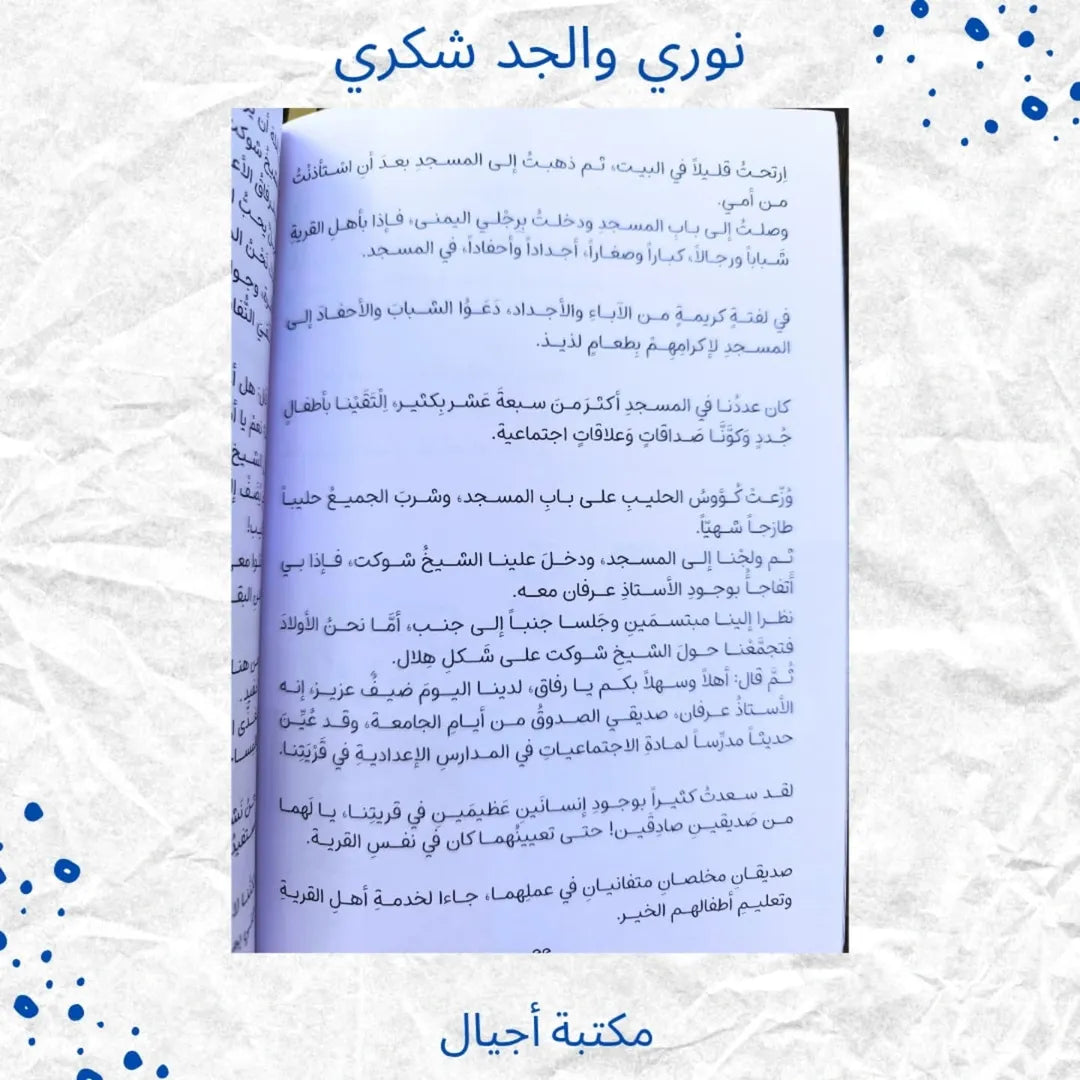 نوري والجد شكري
اِرتحتُ قليلاً في البيت، ثم ذهبتُ إلى المسجدِ بعدَ أنِ اسْتأذنْتُ
من أمي.
وصلتُ إلى بابِ المسجدِ ودخلتُ بِرِجْلي اليمنى، فإذا بأهلِ القريةِ
شباباً ورجالاً، كباراً وصغاراً، أجداداً وأحفاداً، في المسجد.
في لفتةٍ كريمةٍ من الآباءِ والأجداد، دَعَوُا الشبابَ والأحفادَ إلى
المسجدِ لإكرامِهِمْ بِطعامٍ لذيذ.
كان عددُنا في المسجدِ أكثرَ منَ سبعةَ عَشَر بِكثير، اِلْتَقَيْنا بأطفالٍ
جُددٍ وَكوَّنَّا صَداقاتٍ وَعلاقاتٍ اجتماعية.
وُزِّعتْ كُؤوسُ الحليبِ على بابِ المسجد، وشربَ الجميعُ حليباً
طازجاً شهيّاً.
ثم ولجْنا إلى المسجد، ودخلَ علينا الشيخُ شوكت، فإذا بي
أتفاجأُ بوجودِ الأستاذِ عرفان معه.
نظرا إلينا مبتسمَينِ وجَلسا جنباً إلى جنب، أمَّا نحنُ الأولادَ
فتجمَّعْنا حولَ الشيخِ شوكت على شَكلِ هِلال.
ثُمَّ قال: أهلاً وسهلاً بكم يا رفاق، لدينا اليومَ ضيفٌ عزيز، إنه
الأستاذُ عرفان، صديقي الصدوقُ من أيامِ الجامعة، وقد عُيِّنَ
حديثاً مدرِّساً لمادةِ الاجتماعياتِ في المدارسِ الإعداديةِ في قَرْيَتِنا.
لقد سعدتُ كثيراً بوجودِ إنسانَينِ عَظيمَينِ في قريتِنا، يا لَهما
من صَديقينِ صادِقَين! حتى تعيينُهما كان في نَفسِ القرية.
صديقانِ مخلصانِ متفانيانِ في عملِهما، جاءا لخدمةِ أهلِ القريةِ
وتعليمِ أطفالهم الخير.
مكتبة أجيال